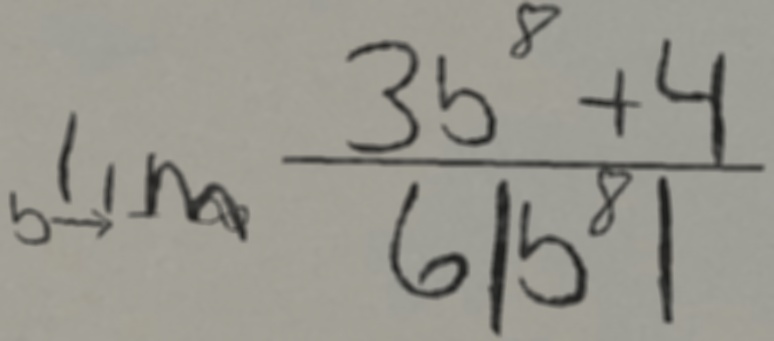 lim b→-∞ (3b^8 + 4) / (6|b^8|)